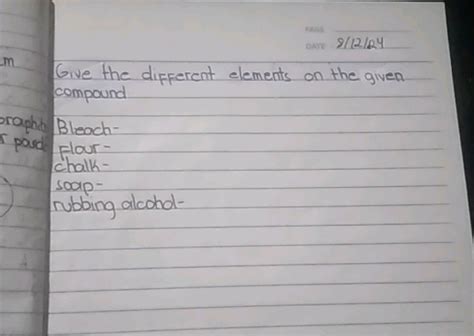 PAGE
DATE 8/12/24
Give the different elements on the given
compound
Bleach-
Flour-
chalk-
soap-
rubbing alcohol-